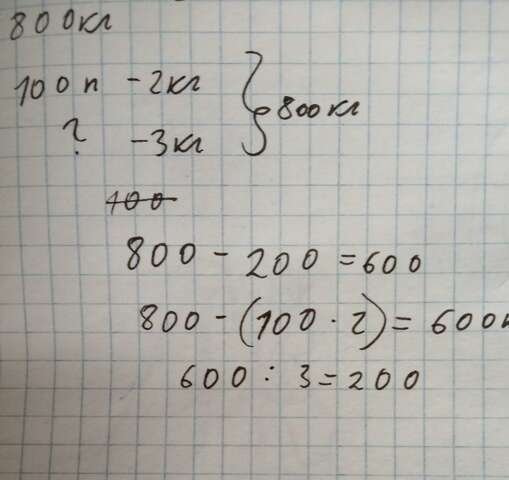 800кг
100п -2кг
? -3кг } 800кг
100
800 - 200 = 600
800 - (100 · 2) = 600к
600 : 3 = 200